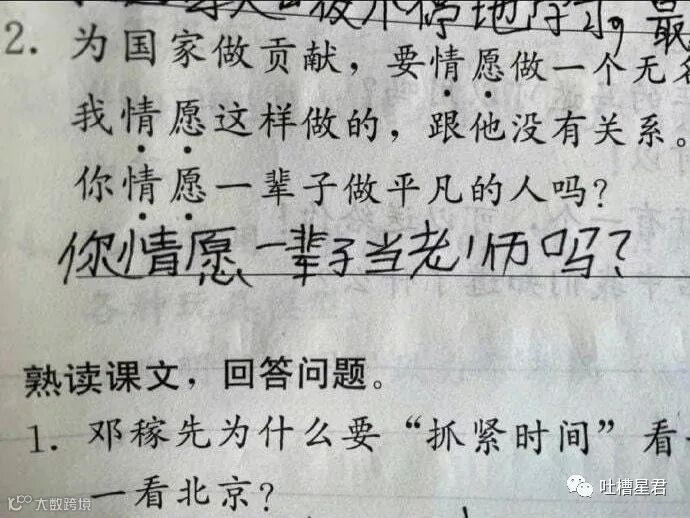 夜不停地学习。最
2. 为国家做贡献，要情愿做一个无名
我情愿这样做的，跟他没有关系。
你情愿一辈子做平凡的人吗？
你情愿一辈子当老师吗？
熟读课文，回答问题。
1. 邓稼先为什么要“抓紧时间”看
一看北京？
大数跨境
吐槽星君